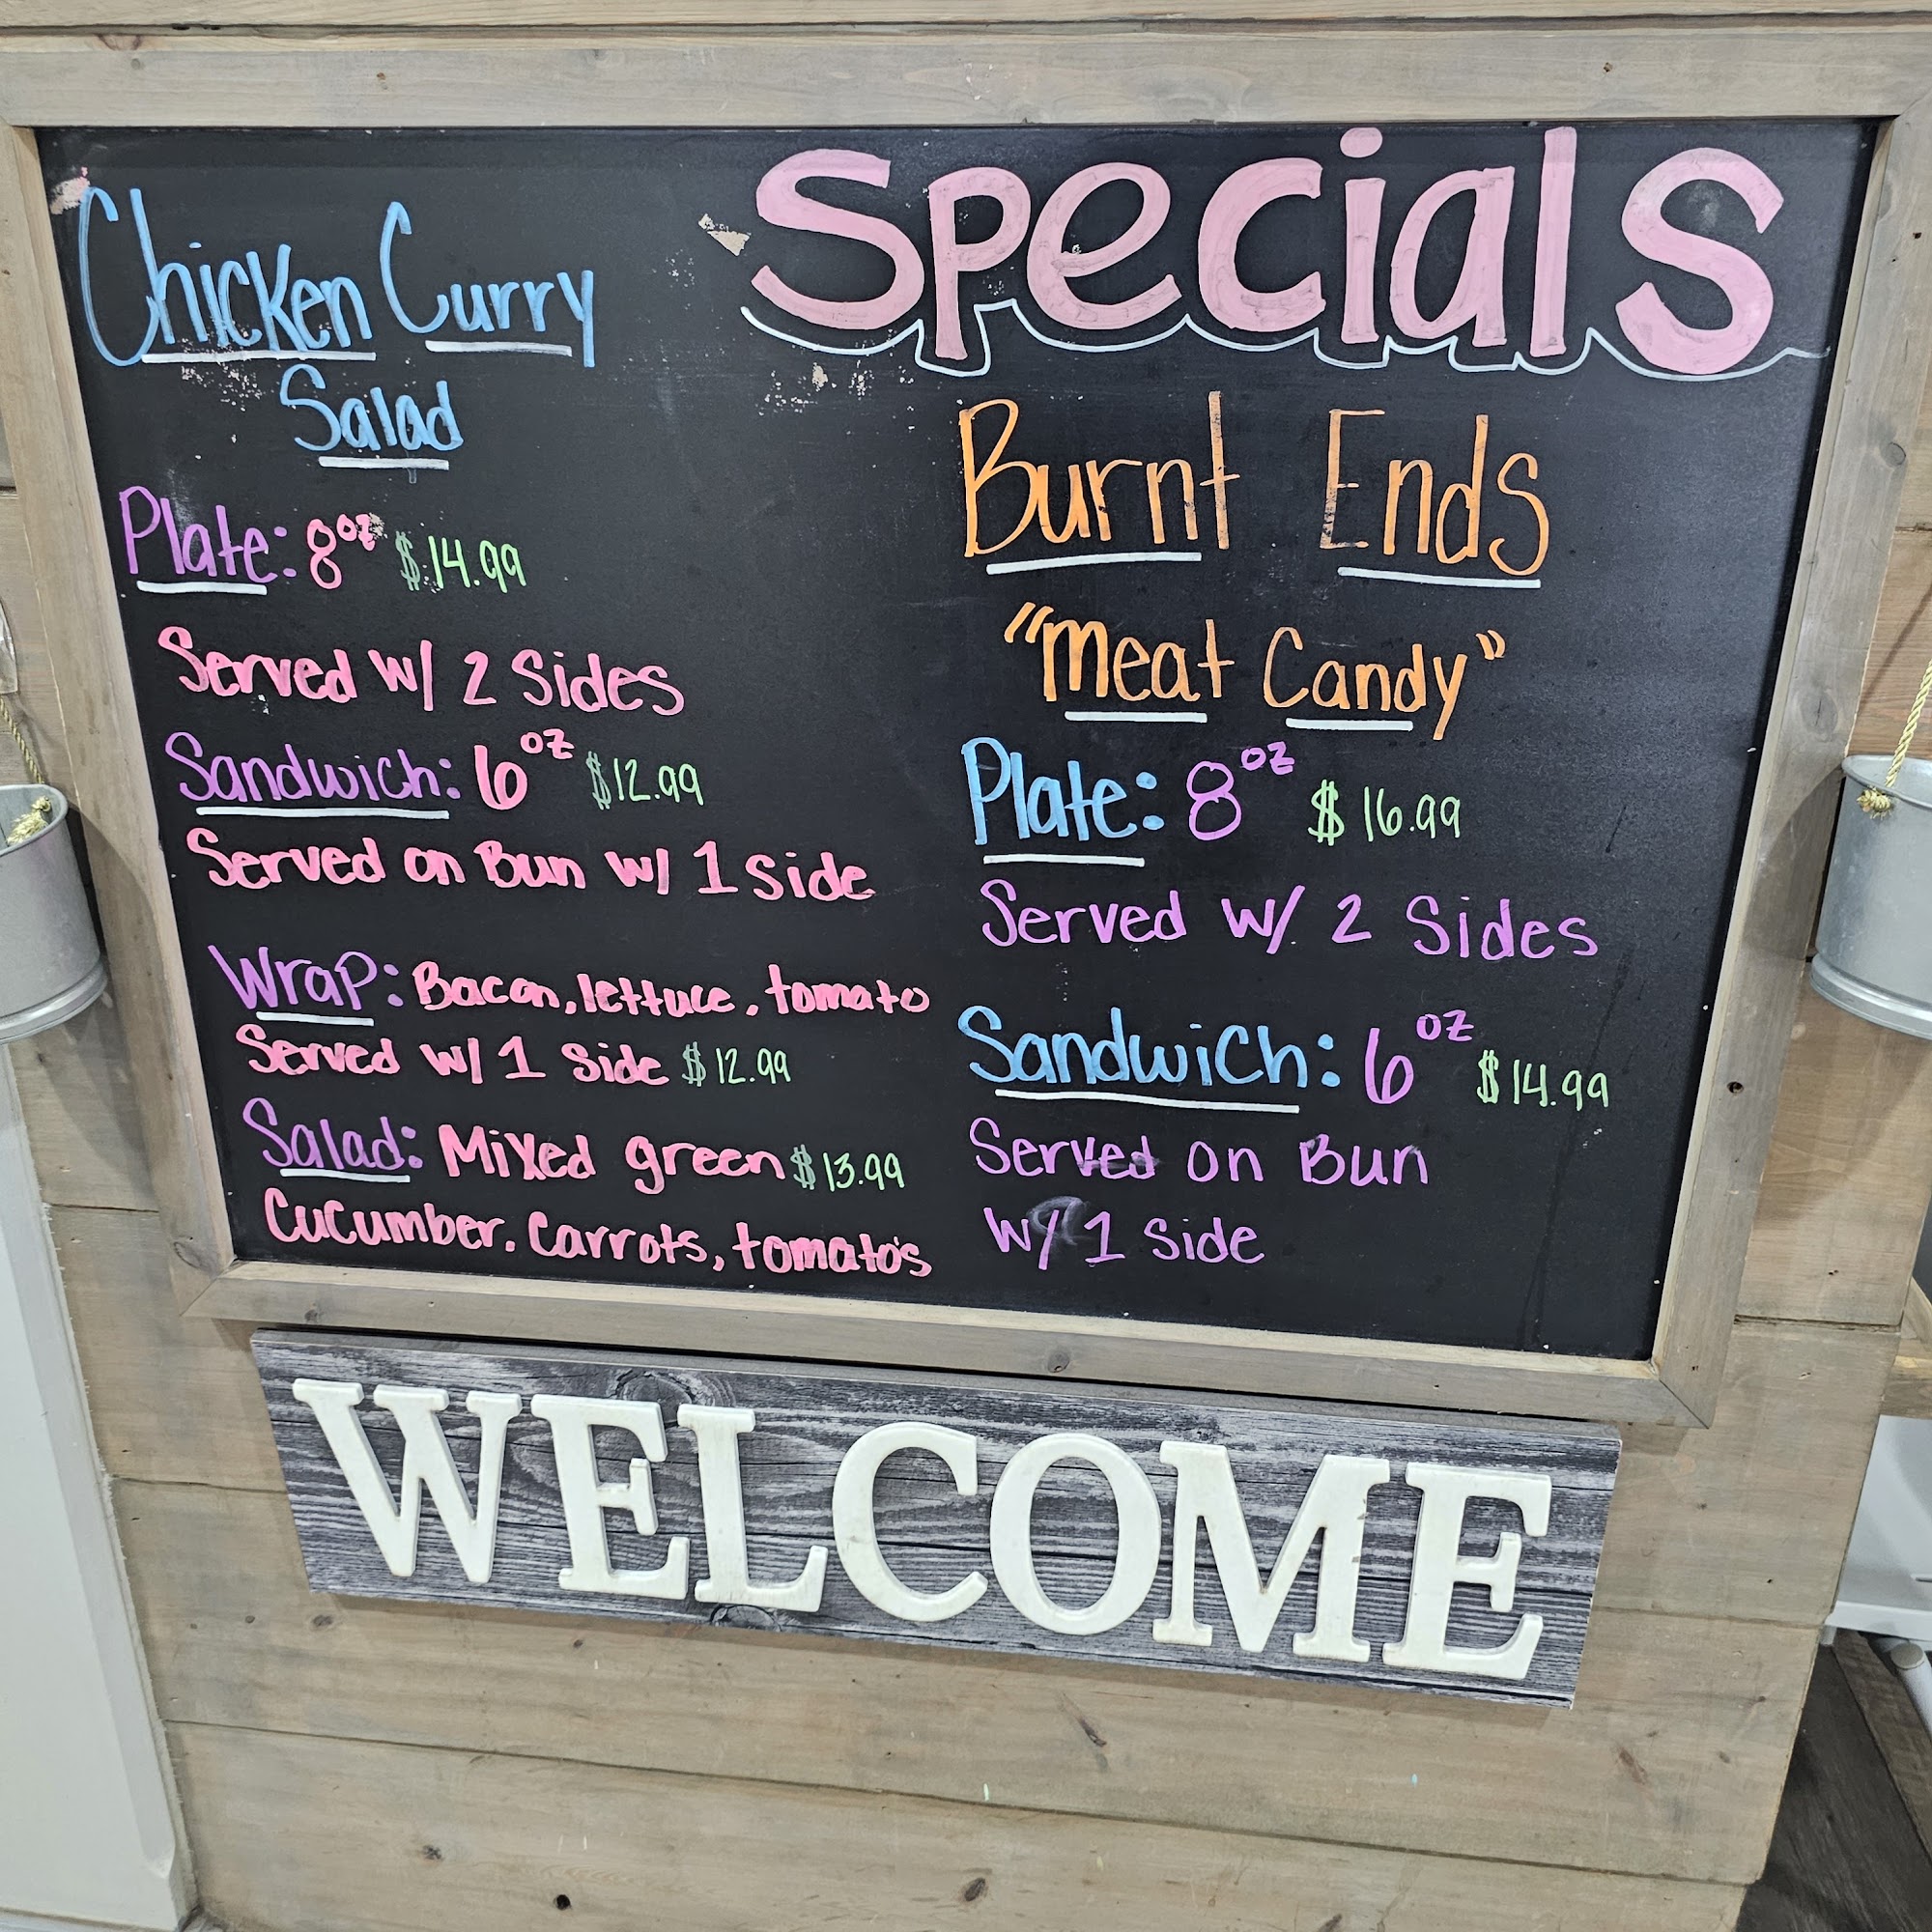 Specials
Chicken Curry
Salad
Plate: 8oz $14.99
Served w/ 2 Sides
Sandwich: 6oz $12.99
Served on Bun w/ 1 side
Wrap: Bacon, lettuce, tomato
Served w/ 1 side $12.99
Salad: Mixed green $13.99
Cucumber, Carrots, tomato's
Burnt Ends
"Meat Candy"
Plate: 8oz $16.99
Served w/ 2 Sides
Sandwich: 6oz $14.99
Served on Bun
w/ 1 side
WELCOME